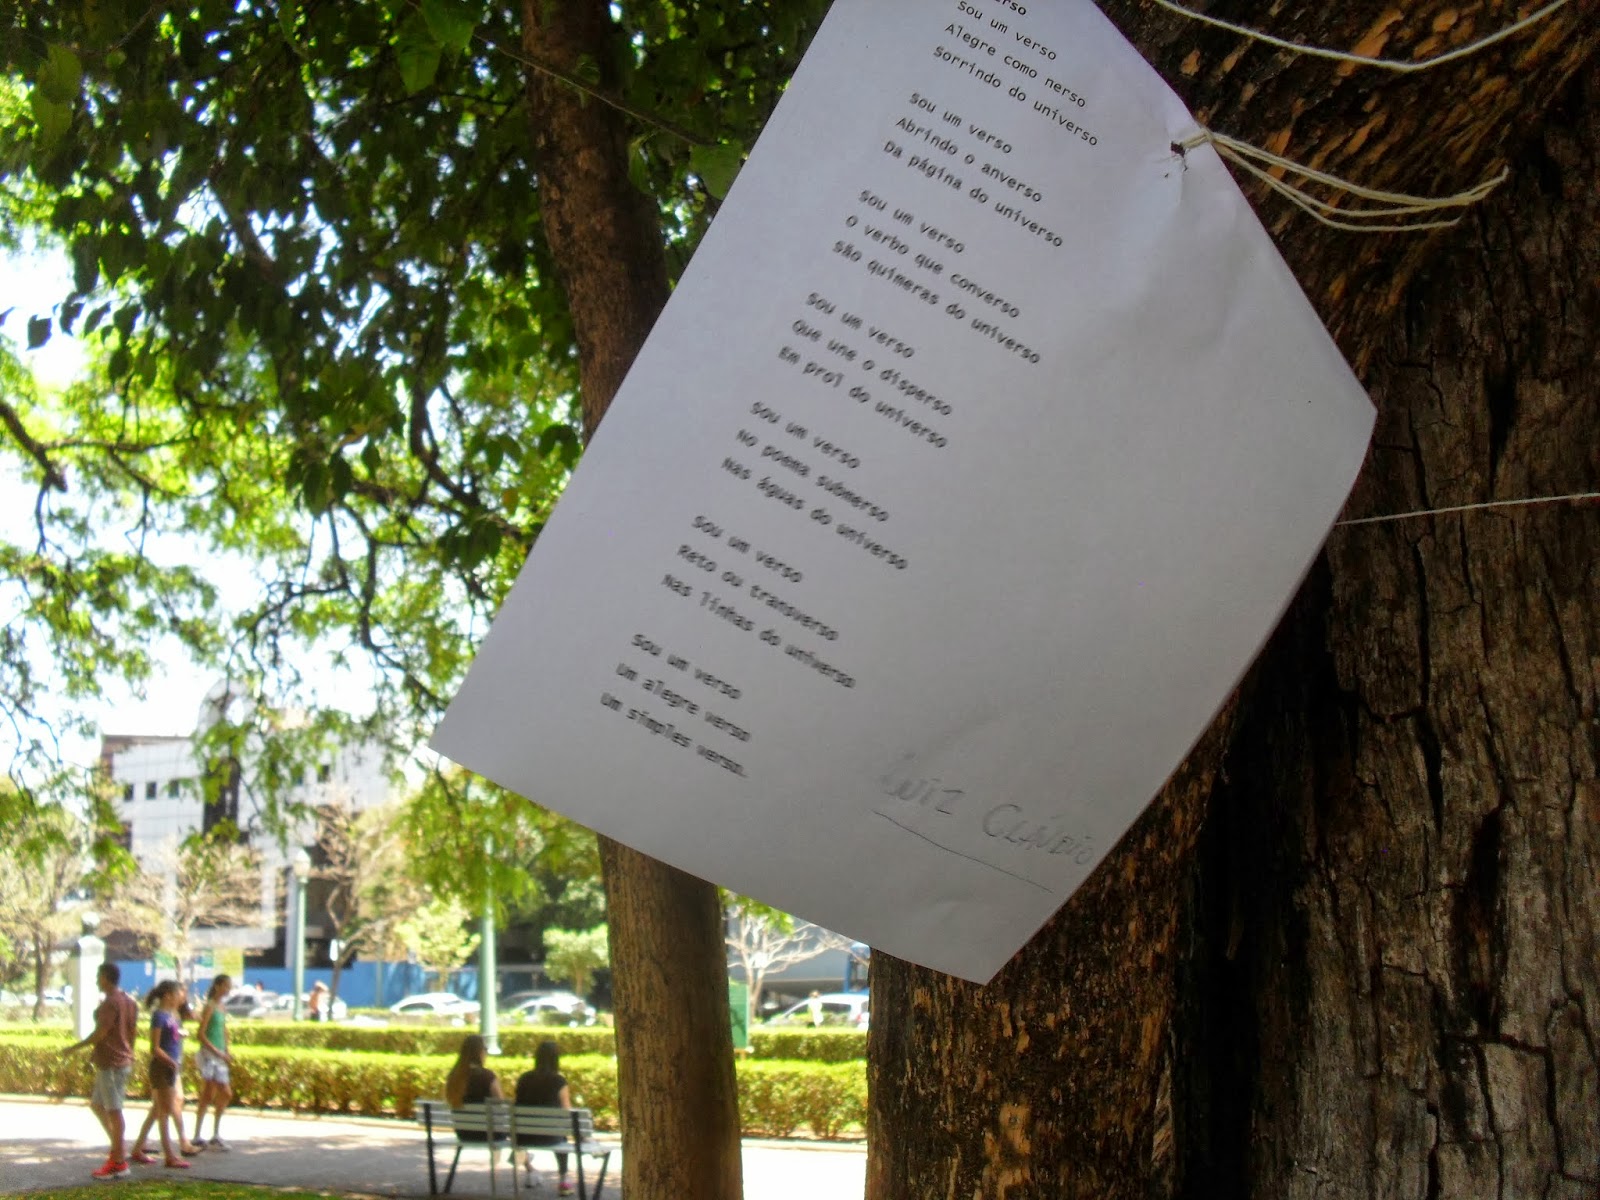 Sou um verso
Alegre como nerso
Sorrindo do universo
Sou um verso
Abrindo o anverso
Da página do universo
Sou um verso
O verbo que converso
São quimeras do universo
Sou um verso
Que une o disperso
Em prol do universo
Sou um verso
No poema submerso
Nas águas do universo
Sou um verso
Reto ou transverso
Nas linhas do universo
Sou um verso
Um alegre verso
Um simples verso.
Luiz Cláudio